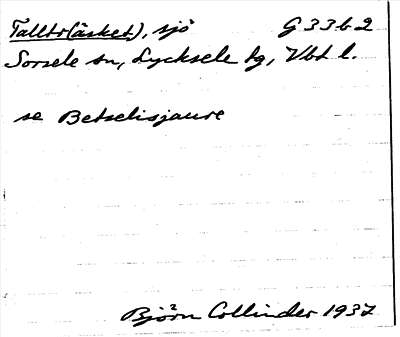 Tallträsket), sjö G 33 b 2
Sorsele sn, Lycksele tg, Vbt l.
se Betselisjaure
Björn Collinder 1937